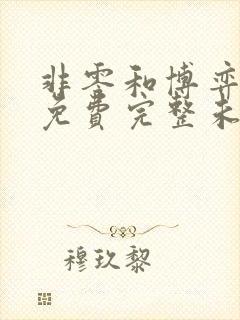 非零和博弈
免费完整未
穆玖黎